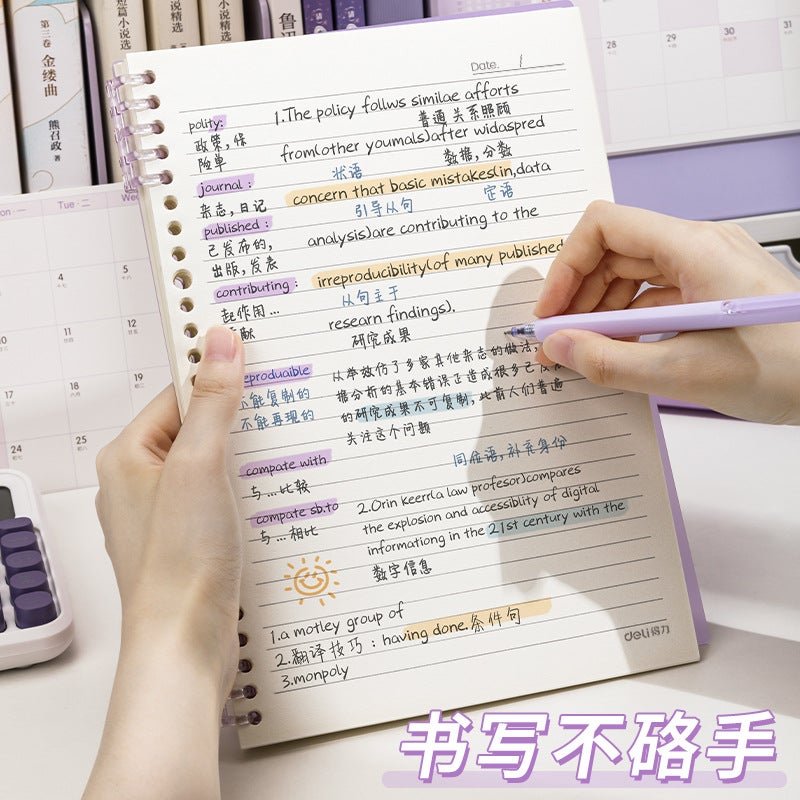 第三卷
金缕曲
熊召政 著
短篇小说精选
小说精选
小说精选
鲁迅
Mon 一
Tue 二
4
5
10
11
12
17
18
19
24
25
28
29
30
31
Date. /
polity:
政策,保
险单
1.The policy follws similae afforts
普通 关系照顾
from(other youmals)after widaspred
状语
数据,分数
journal:
杂志,日记
concern that basic mistakes(in,data
引导从句
定语
published:
已发布的,
出版,发表
analysis)are contributing to the
contributing:
起作用...
献
irreproducibility(of many published
从句主干
researn findings).
研究成果
eproduaible
不能复制的
不能再现的
从举效仿了多家其他杂志的做法,
据分析的基本错误正造成很多已发
的研究成果不可复制,此前人们普遍
关注这个问题
compate with
与...比较
同位语,补充身份
compate sb.to
与...相比
2.Orin keerr(a law profesor)compares
the explosion and accessiblity of digital
informationg in the 21st century with the
数字信息
1.a motley group of
2.翻译技巧:having done.条件句
3.monpoly
deli得力
书写不硌手